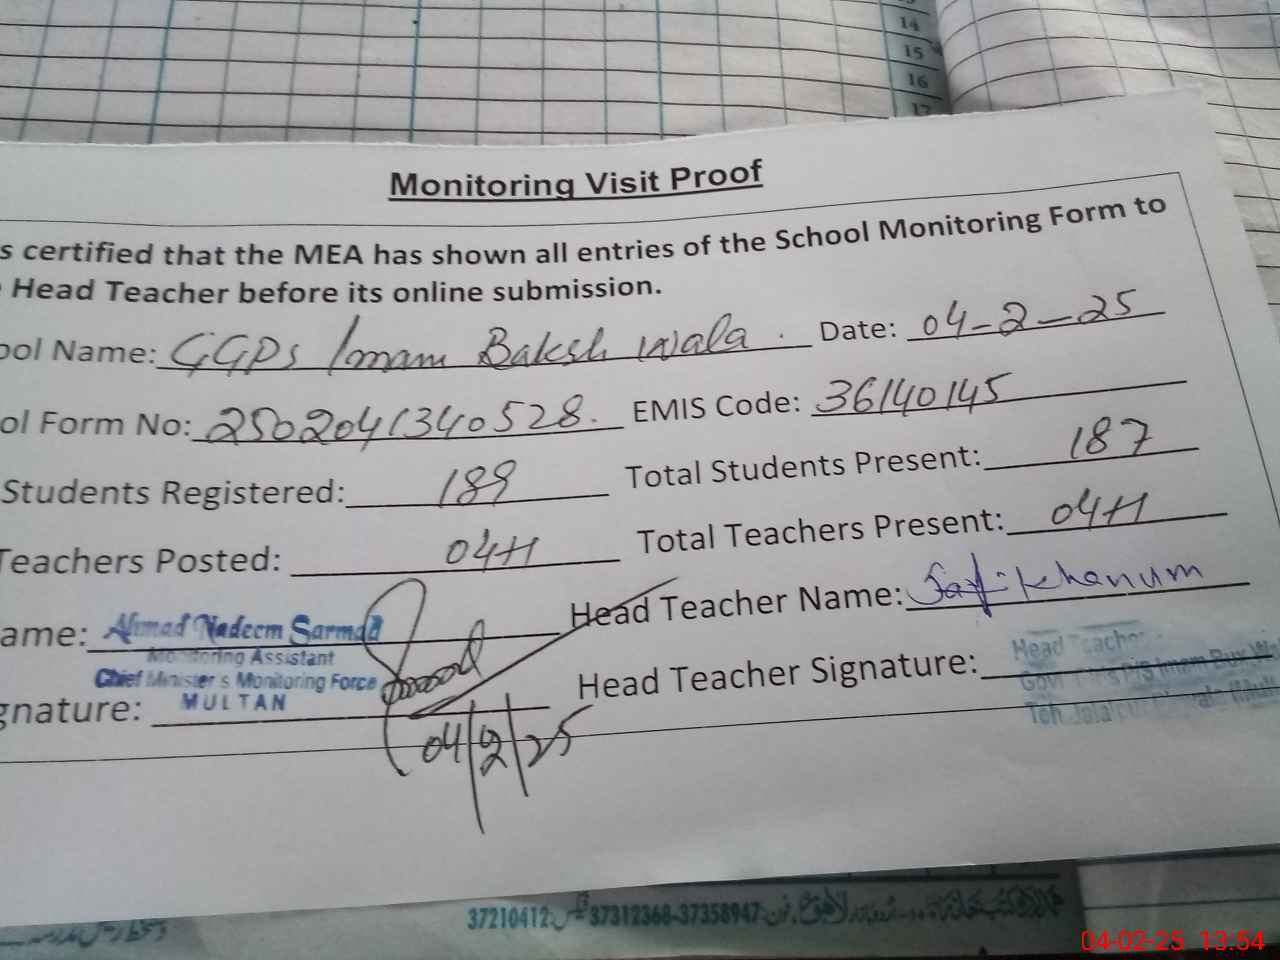 14
15
16
17
Monitoring Visit Proof
s certified that the MEA has shown all entries of the School Monitoring Form to
Head Teacher before its online submission.
ool Name: GGPS Imam Baksh wala. Date: 04-2-25
ol Form No: 2502041340528. EMIS Code: 36140145
Students Registered: 189 Total Students Present: 187
Teachers Posted: 04+1 Total Teachers Present: 04+1
ame: Ahmad Nadeem Sarmad Head Teacher Name: Safi Khanum
Monitoring Assistant
Chief Minister's Monitoring Force
MULTAN
gnature: Head Teacher Signature:
Head Teacher
Imam Bux
Teh
04/2/25
37210412 37312368-37358947
04-02-25 13:54